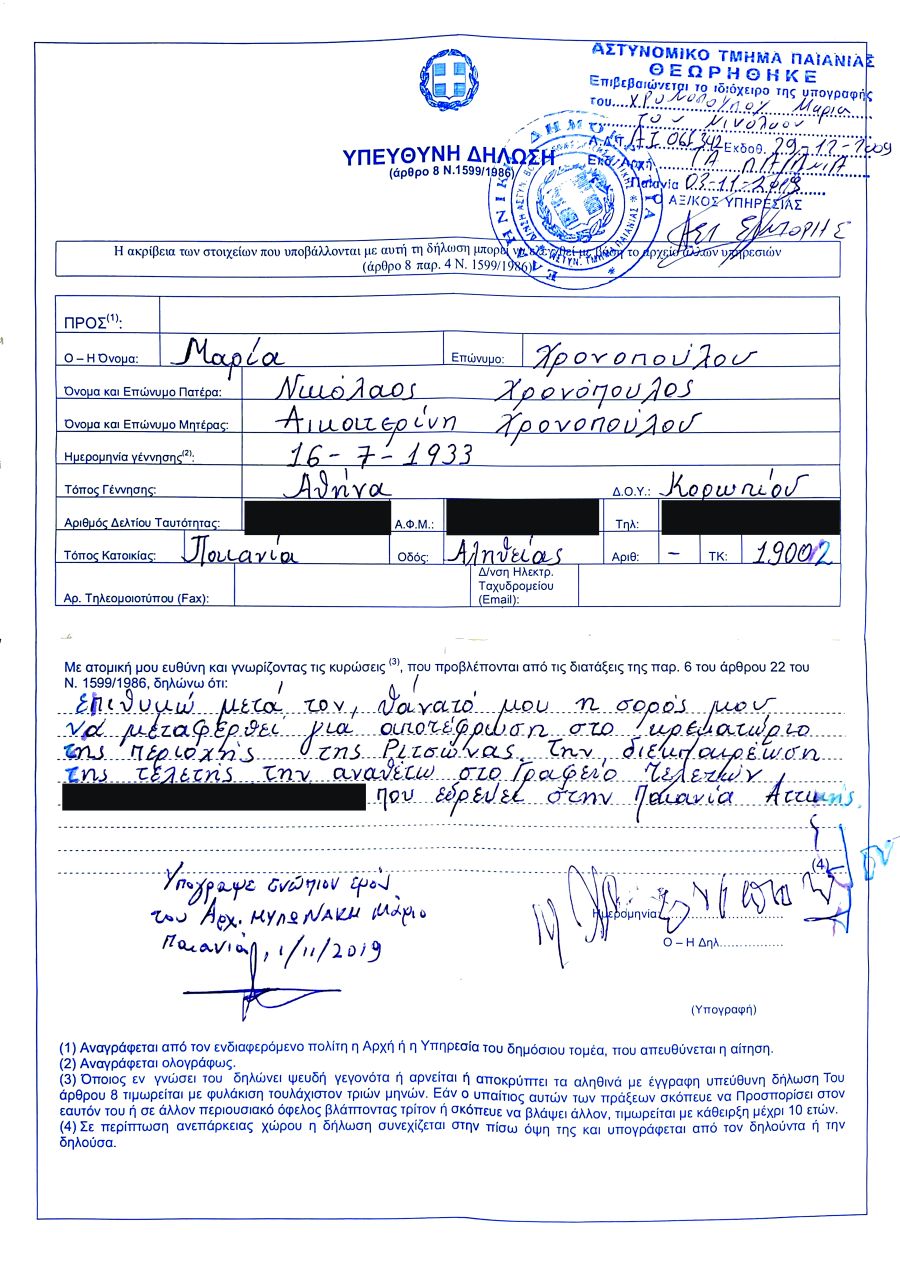 ΑΣΤΥΝΟΜΙΚΟ ΤΜΗΜΑ ΠΑΙΑΝΙΑΣ
ΘΕΩΡΗΘΗΚΕ
Επιβεβαιώνεται το ιδιόχειρο της υπογραφής
του Χρονοπούλου Μαρία
του Νικόλαου
Α.Δ.Τ. ΑΙ 061342 Εκδοθ. 29-12-2009
Εκδ. Αρχή ΤΑ
Παιανία 03-11-2019
Ο ΑΞ/ΚΟΣ ΥΠΗΡΕΣΙΑΣ
ΥΠΕΥΘΥΝΗ ΔΗΛΩΣΗ
(άρθρο 8 Ν.1599/1986)
ΕΛΛΗΝΙΚΗ ΔΗΜΟΚΡΑΤΙΑ
ΑΣΤΥΝ. ΤΜΗΜΑ ΠΑΙΑΝΙΑΣ
Η ακρίβεια των στοιχείων που υποβάλλονται με αυτή τη δήλωση μπορεί να ελεγχθεί με βάση το αρχείο άλλων υπηρεσιών
(άρθρο 8 παρ. 4 Ν. 1599/1986)
ΠΡΟΣ(1):
Ο – Η Όνομα: Μαρία Επώνυμο: Χρονοπούλου
Όνομα και Επώνυμο Πατέρα: Νικόλαος Χρονόπουλος
Όνομα και Επώνυμο Μητέρας: Αικατερίνη Χρονοπούλου
Ημερομηνία γέννησης(2): 16-7-1933
Τόπος Γέννησης: Αθήνα Δ.Ο.Υ.: Κορωπίου
Αριθμός Δελτίου Ταυτότητας: Α.Φ.Μ.: Τηλ:
Τόπος Κατοικίας: Παιανία Οδός: Αληθείας Αριθ: – ΤΚ: 19002
Αρ. Τηλεομοιοτύπου (Fax): Δ/νση Ηλεκτρ. Ταχυδρομείου (Email):
Με ατομική μου ευθύνη και γνωρίζοντας τις κυρώσεις (3), που προβλέπονται από τις διατάξεις της παρ. 6 του άρθρου 22 του
Ν. 1599/1986, δηλώνω ότι:
Επιθυμώ μετά τον θάνατό μου η σορός μου
να μεταφερθεί για αποτέφρωση στο κρεματώριο
της περιοχής της Ριτσώνας. Την διεκπαιρέωση
της τελετής την αναθέτω στο Γραφείο Τελετών
που εδρεύει στην Παιανία Αττικής.
(4)
Υπόγραψε ενώπιον εμού
του Αρχ. ΜΥΛΩΝΑΚΗ Μάριο
Παιανία, 1/11/2019
Ημερομηνία
Ο – Η Δηλ.
(Υπογραφή)
(1) Αναγράφεται από τον ενδιαφερόμενο πολίτη η Αρχή ή η Υπηρεσία του δημόσιου τομέα, που απευθύνεται η αίτηση.
(2) Αναγράφεται ολογράφως.
(3) Όποιος εν γνώσει του δηλώνει ψευδή γεγονότα ή αρνείται ή αποκρύπτει τα αληθινά με έγγραφη υπεύθυνη δήλωση Του
άρθρου 8 τιμωρείται με φυλάκιση τουλάχιστον τριών μηνών. Εάν ο υπαίτιος αυτών των πράξεων σκόπευε να Προσπορίσει στον
εαυτόν του ή σε άλλον περιουσιακό όφελος βλάπτοντας τρίτον ή σκόπευε να βλάψει άλλον, τιμωρείται με κάθειρξη μέχρι 10 ετών.
(4) Σε περίπτωση ανεπάρκειας χώρου η δήλωση συνεχίζεται στην πίσω όψη της και υπογράφεται από τον δηλούντα ή την
δηλούσα.